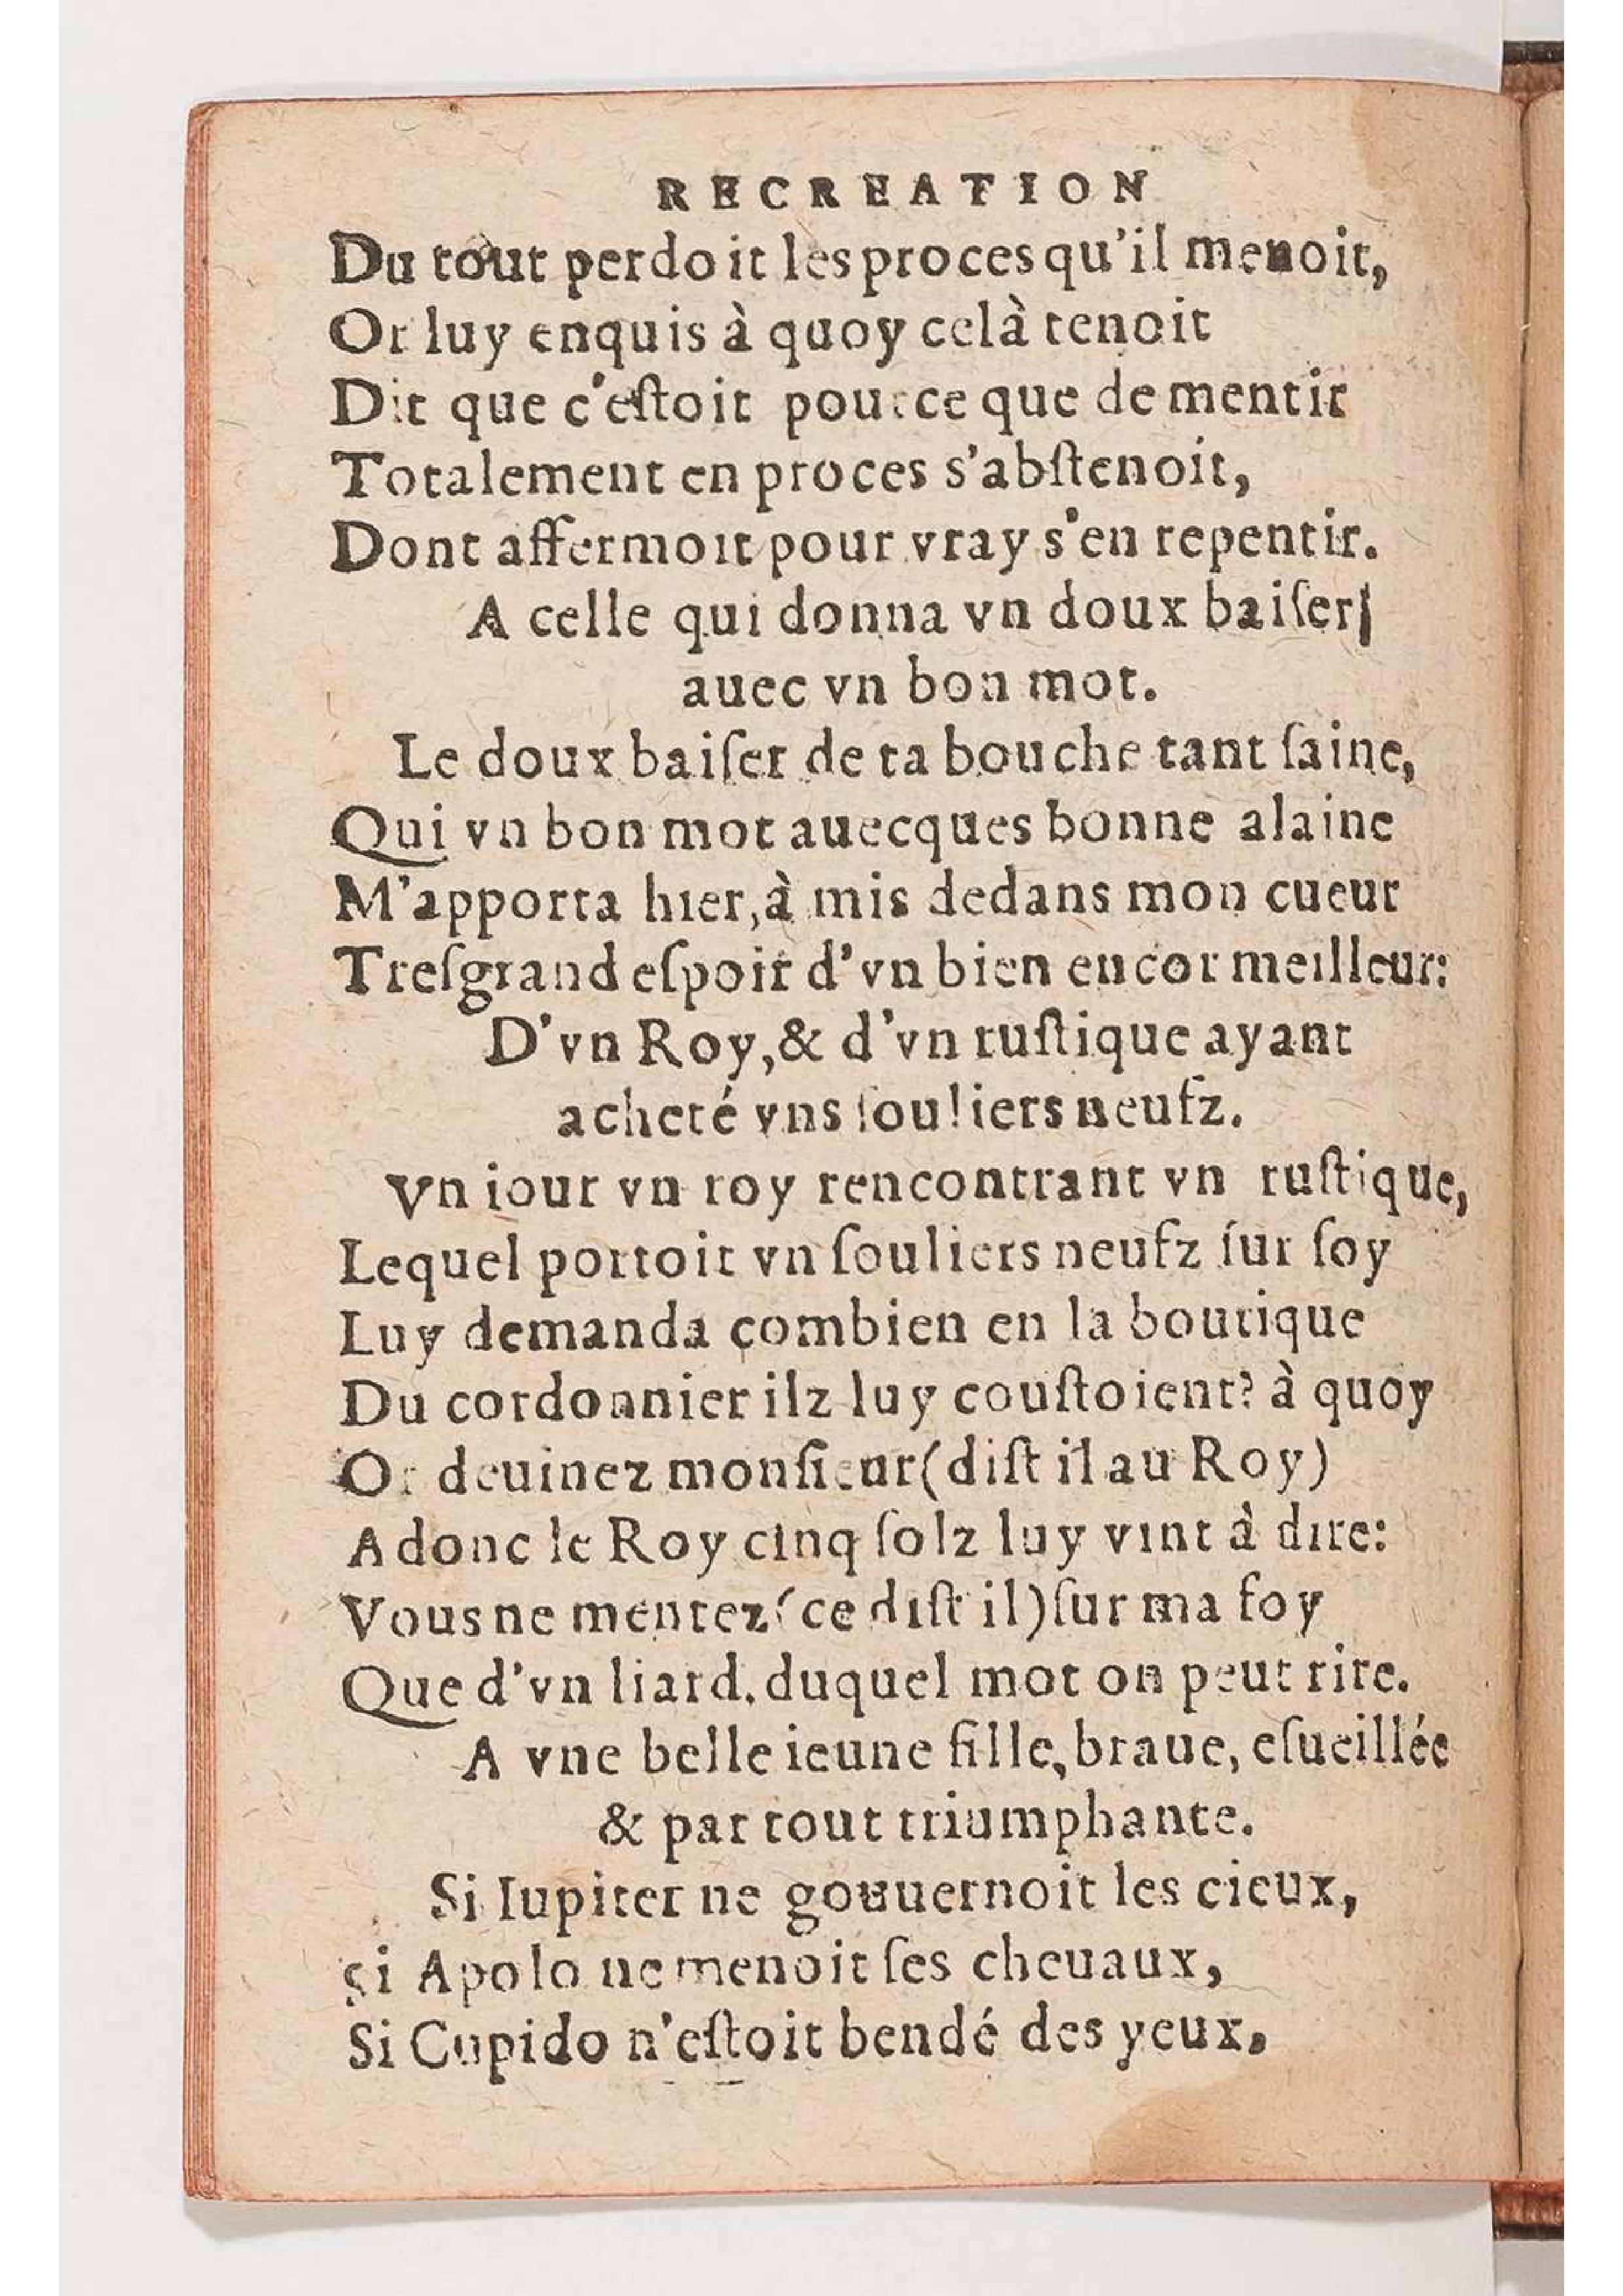 RECREATION
Du tout perdoit les proces qu'il menoit,
Or luy enquis à quoy celà tenoit
Dit que c'eſtoit pource que de mentir
Totalement en proces s'abſtenoit,
Dont affermoit pour vray s'en repentir.
A celle qui donna vn doux baiſer
auec vn bon mot.
Le doux baiſer de ta bouche tant ſaine,
Qui vn bon mot auecques bonne alaine
M'apporta hier, à mis dedans mon cueur
Treſgrand eſpoir d'vn bien encor meilleur:
D'vn Roy, & d'vn ruſtique ayant
acheté vns ſouliers neufz.
Vn iour vn roy rencontrant vn ruſtique,
Lequel portoit vn ſouliers neufz ſur ſoy
Luy demanda combien en la boutique
Du cordonnier ilz luy couſtoient? à quoy
Or deuinez monſieur (diſt il au Roy)
Adonc le Roy cinq ſolz luy vint à dire:
Vous ne mentez (ce diſt il) ſur ma foy
Que d'vn liard. duquel mot on peut rire.
A vne belle ieune fille, braue, eſueillée
& par tout triumphante.
Si Iupiter ne gouuernoit les cieux,
Si Apolo ne menoit ſes cheuaux,
Si Cupido n'eſtoit bendé des yeux,